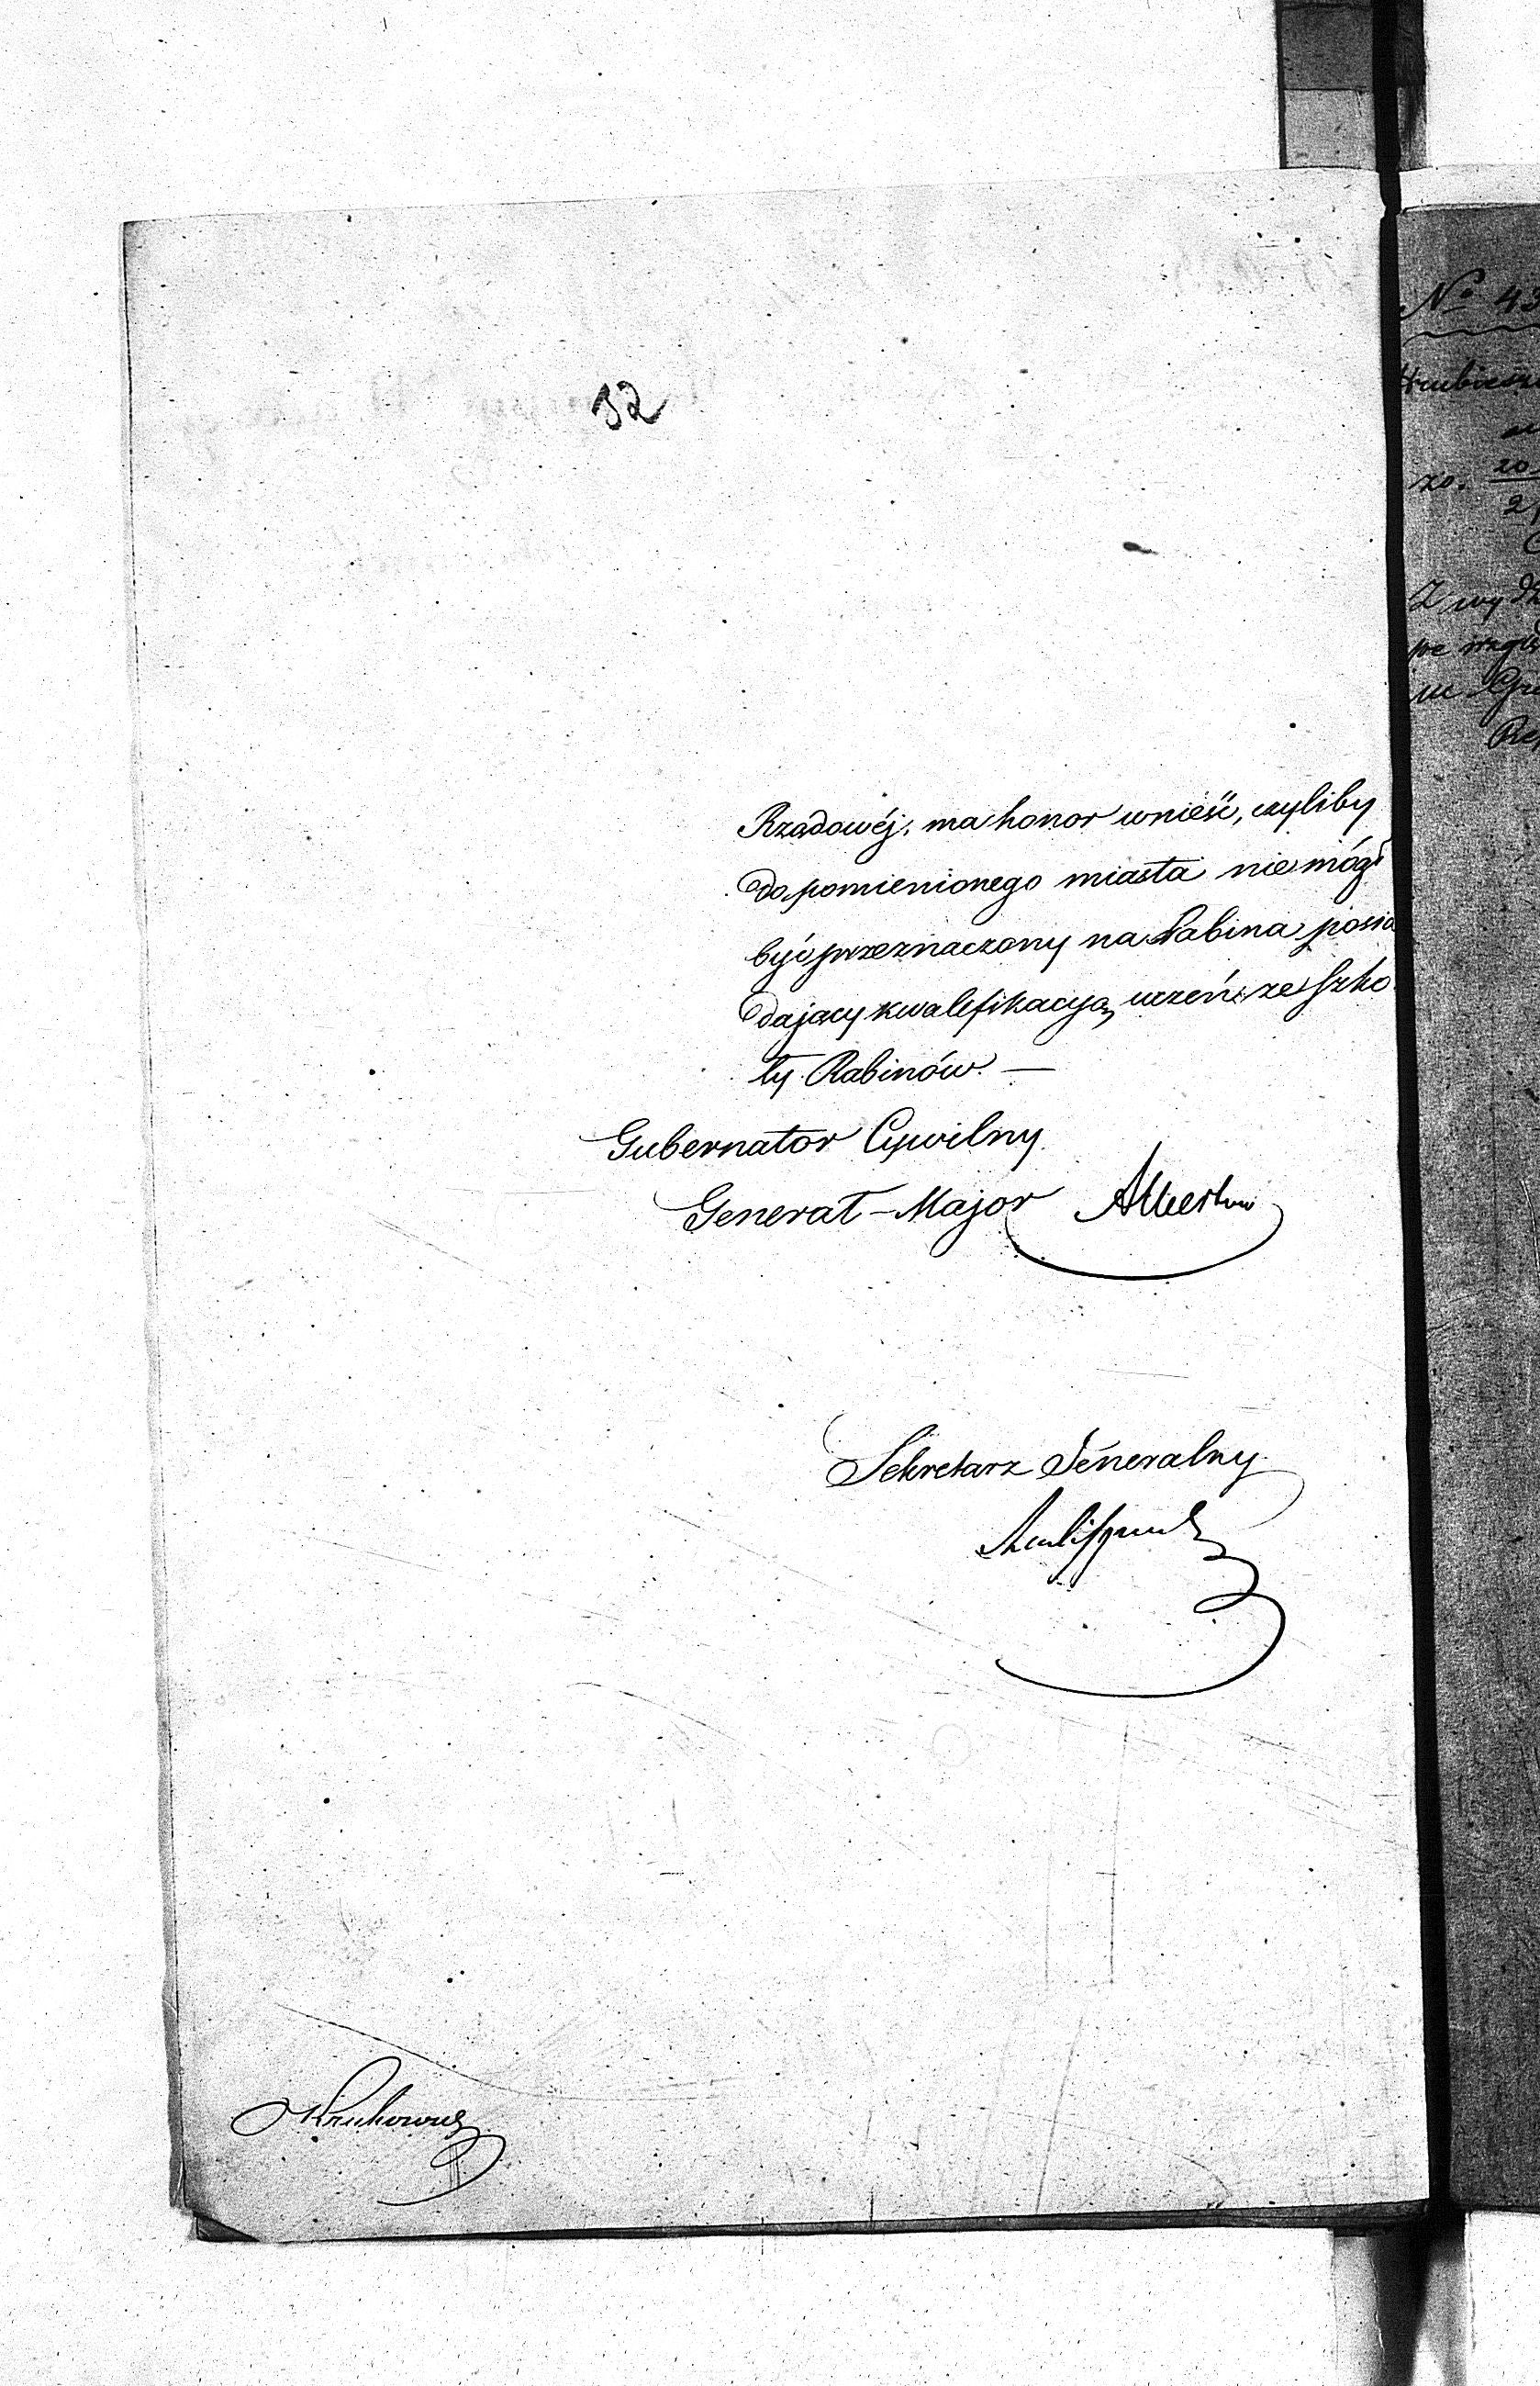 32
Rządowéj, ma honor wnieść, czyliby
do pomienionego miasta nie mógł
być przeznaczony na Rabina posia
dający kwalefikacyą uczeń ze szko
ły Rabinów. —
Gubernator Cywilny
Generał-Major
Sekretarz Generalny.
No 4
Z wy